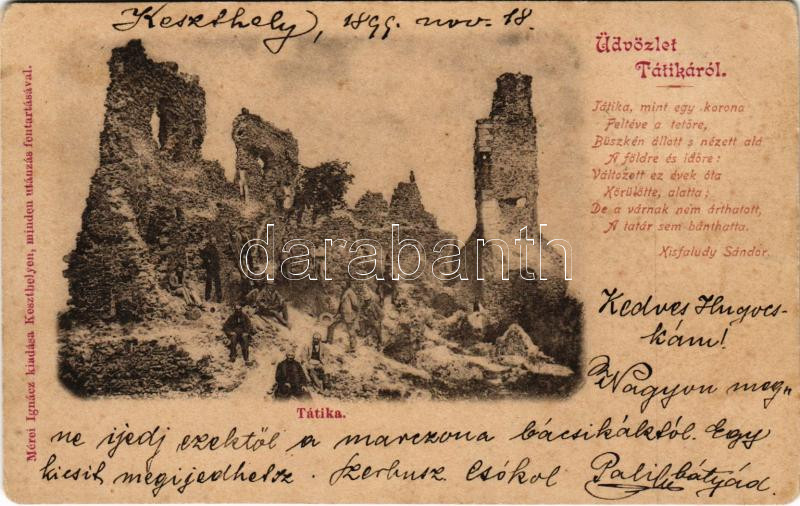 Keszthely, 1899. nov. 18.
Üdvözlet
Tátikáról.
Tátika, mint egy korona
Feltéve a tetőre,
Büszkén állott s nézett alá
A földre és időre:
Változott ez évek óta
Körülötte, alatta;
De a várnak nem árthatott,
A tatár sem bánthatta.
Kisfaludy Sándor.
Mérei Ignácz kiadása Keszthelyen, minden utánzás fentartásával.
darabanth
.com
Tátika.
Kedves Hugocs-
kám!
Nagyon meg-
ne ijedj ezektől a marczona bácsikáktól. Egy
kicsit megijedhetsz. Szerbusz. Csókol Pali bátyád.